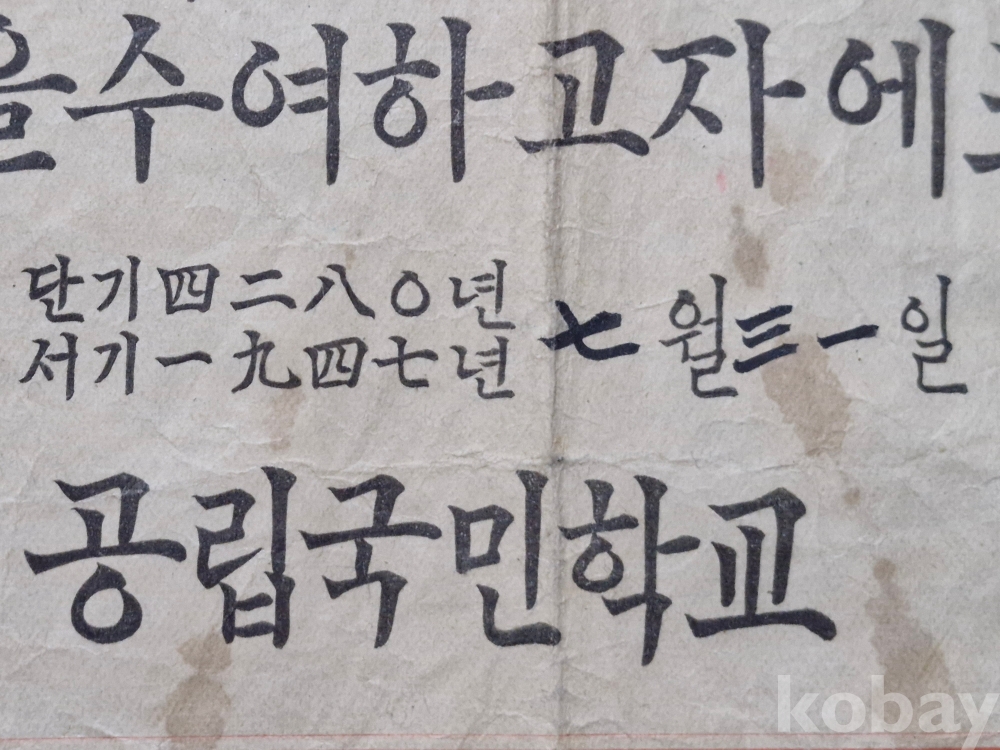 을수여하고자에
단기四二八〇년
서기一九四七년 七월三一일
공립국민학교
kobay